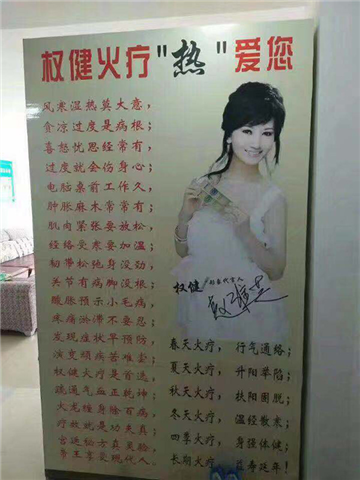 权健火疗"热"爱您
风寒湿热莫大意，
贪凉过度是病根；
喜怒忧思经常有，
过度就会伤身心；
电脑桌前工作久，
肿胀麻木常常有；
肌肉紧张要放松，
经络受寒要加温；
韧带松弛身没劲，
关节有病脚没根；
酸胀预示小毛病，
疼痛淤滞不要忍；
发现症状早预防，
演变顽疾苦难尝；
权健火疗是首选，
疏通气血正乾坤；
大龙缠身除百病，
疗效就是功夫真；
宫廷秘方真灵验，
帝王享受现代人。
权健 形象代言人
春天火疗， 行气通络；
夏天火疗， 升阳举陷；
秋天火疗， 扶阳固脱；
冬天火疗， 温经散寒；
四季火疗， 身强体健；
长期火疗， 益寿延年！